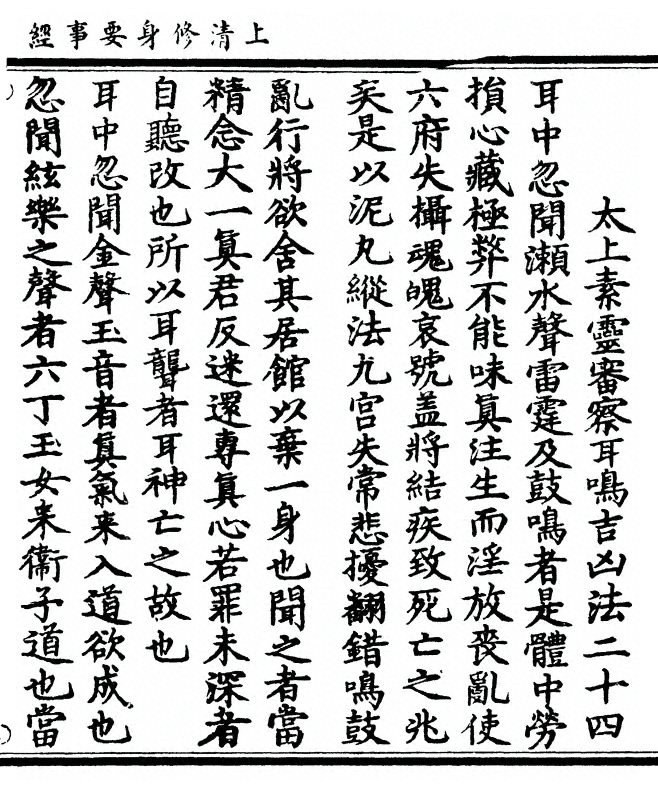 上清修身要事經
太上素靈審察耳鳴吉凶法二十四
耳中忽聞瀨水聲雷霆及鼓鳴者是體中勞
損心藏極弊不能味真注生而淫放喪亂使
六府失攝魂魄哀號盖將結疾致死亡之兆
矣是以泥丸縱法九宫失常悲擾翻錯鳴鼓
亂行將欲舍其居館以棄一身也聞之者當
精念大一真君反迷還專真心若罪未深者
自聽改也所以耳聾者耳神亡之故也
耳中忽聞金聲玉音者真氣来入道欲成也
忽聞絃樂之聲者六丁玉女来衛子道也當